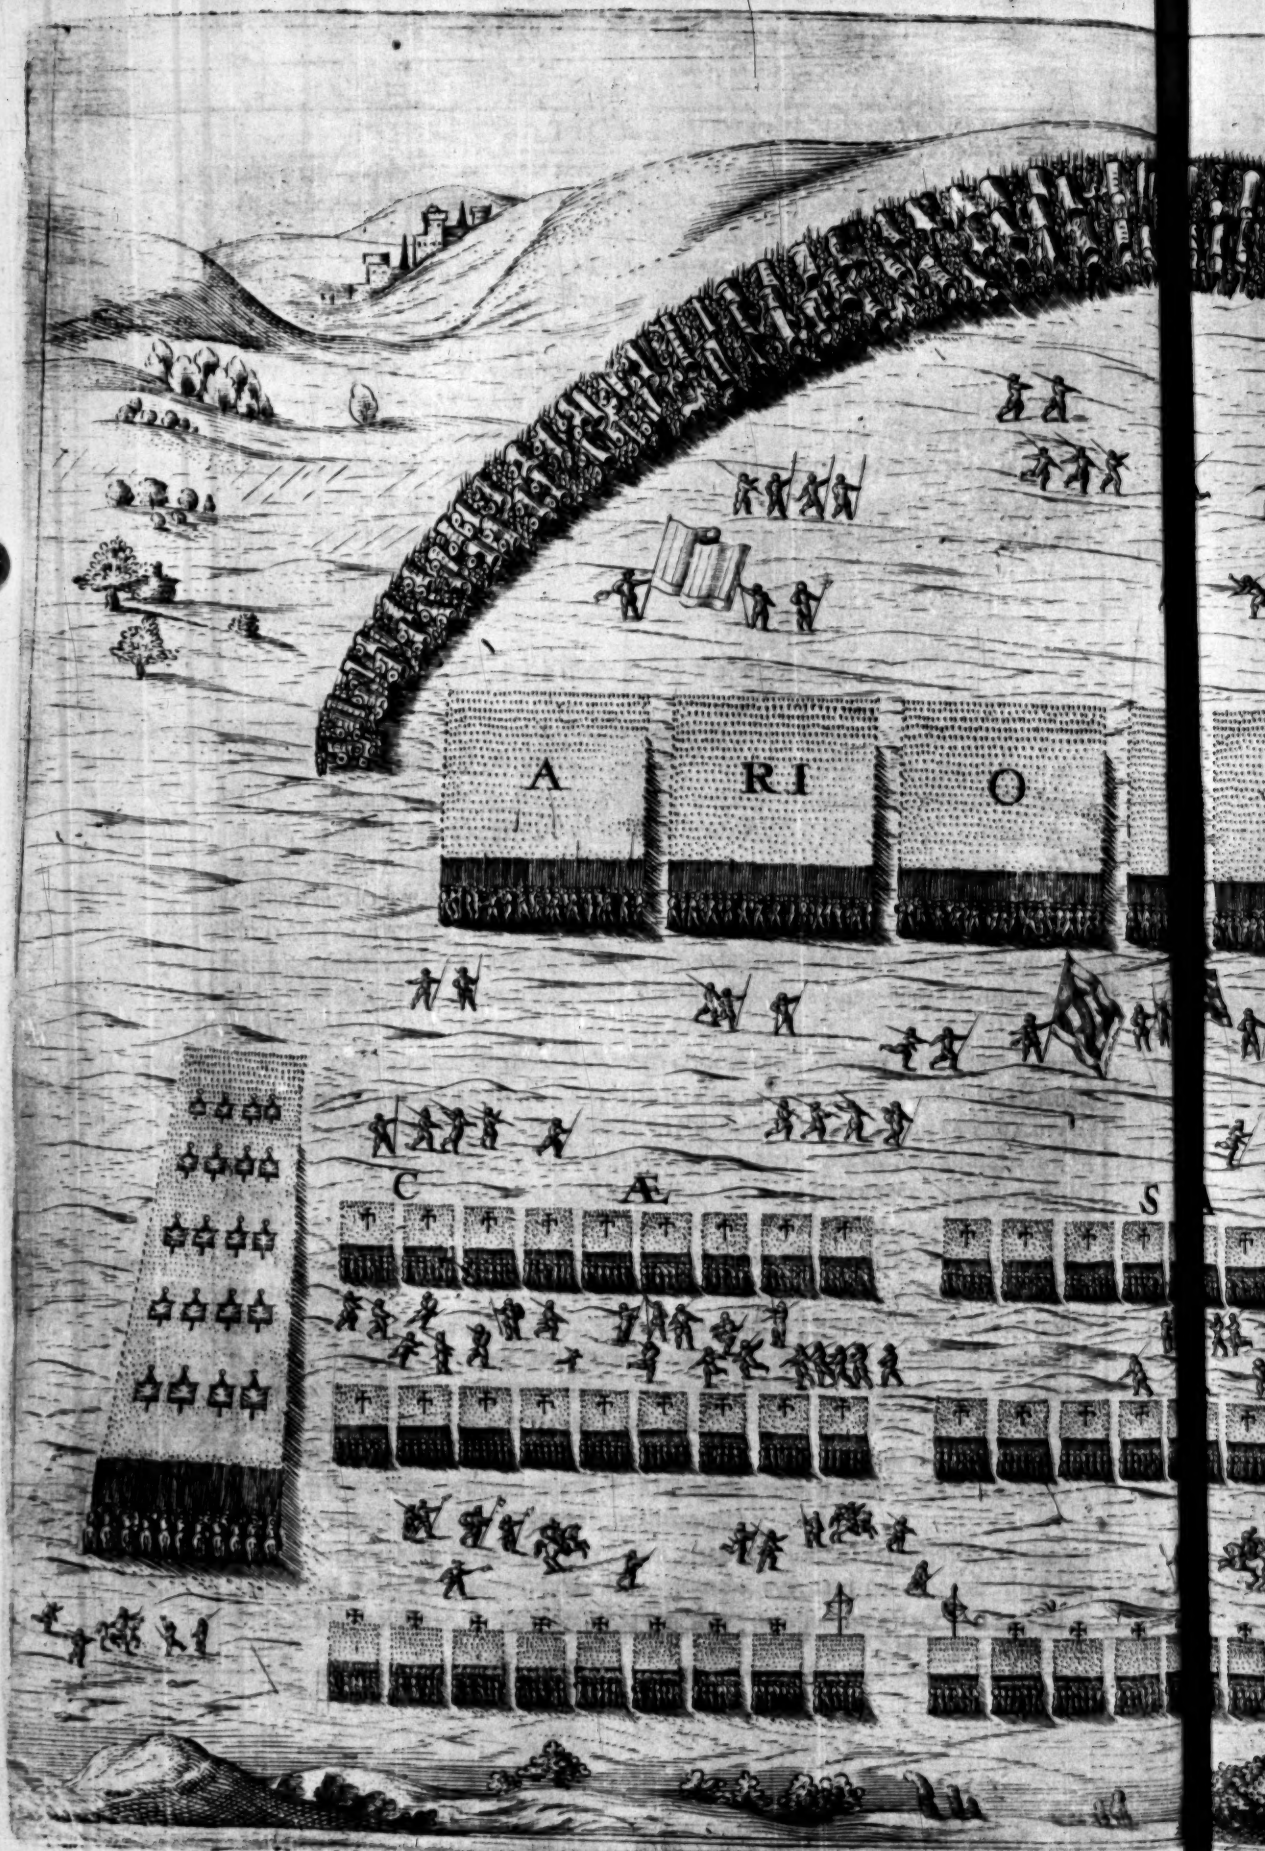 A RI O
C Æ S A